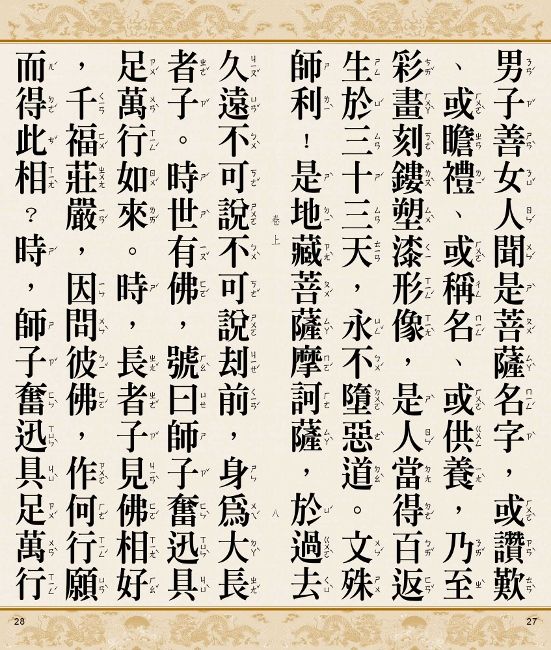 男子善女人聞是菩薩名字，或讚歎
、或瞻禮、或稱名、或供養，乃至
彩畫刻鏤塑漆形像，是人當得百返
生於三十三天，永不墮惡道。文殊
師利！是地藏菩薩摩訶薩，於過去
卷上
八
久遠不可說不可說刦前，身為大長
者子。時世有佛，號曰師子奮迅具
足萬行如來。時，長者子見佛相好
，千福莊嚴，因問彼佛，作何行願
而得此相？時，師子奮迅具足萬行
28
27